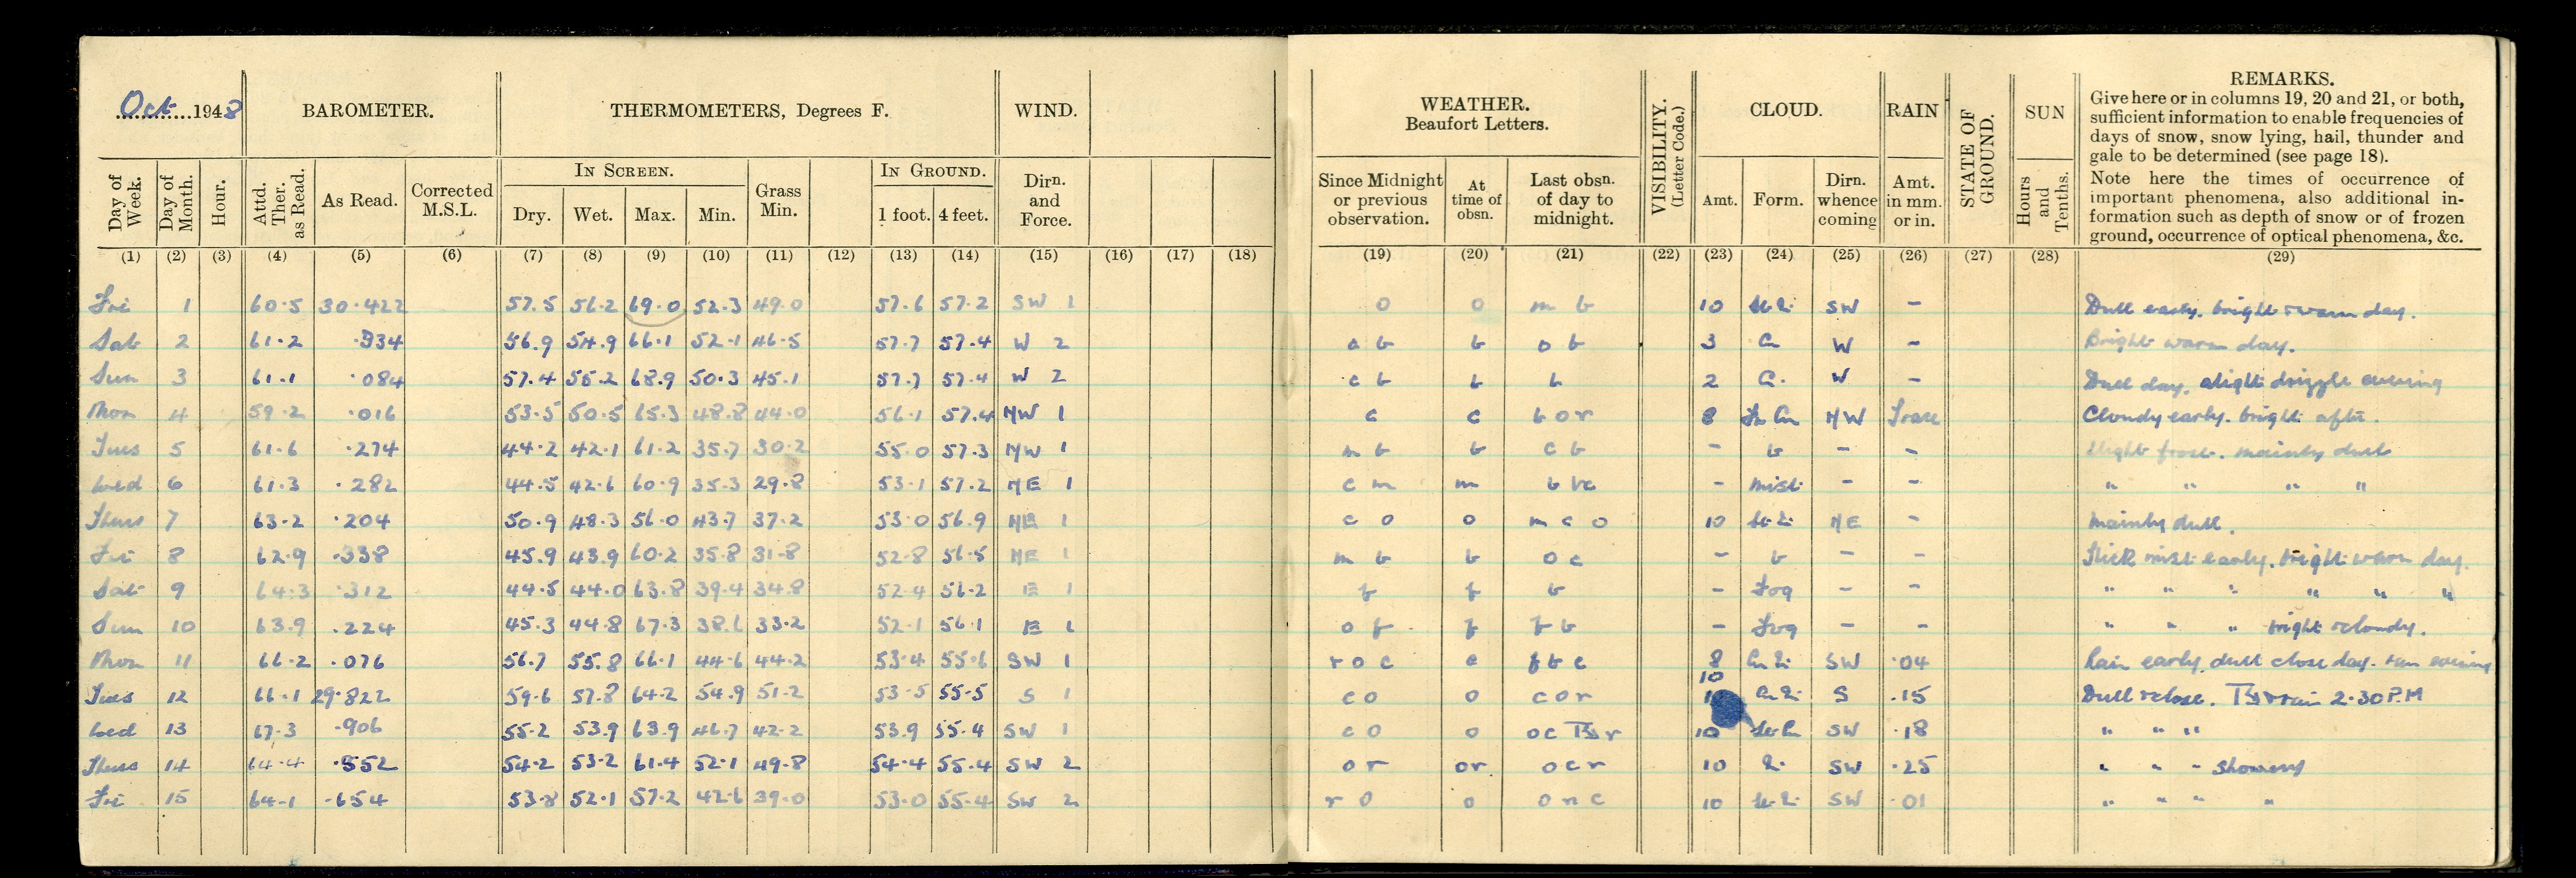 Oct 1948 BAROMETER. THERMOMETERS, Degrees F. WIND. WEATHER. Beaufort Letters. VISIBILITY. (Letter Code.) CLOUD. RAIN STATE OF GROUND. SUN REMARKS.
Give here or in columns 19, 20 and 21, or both,
sufficient information to enable frequencies of
days of snow, snow lying, hail, thunder and
gale to be determined (see page 18).
Note here the times of occurrence of
important phenomena, also additional in-
formation such as depth of snow or of frozen
ground, occurrence of optical phenomena, &c.
IN SCREEN. IN GROUND.
Day of Week. Day of Month. Hour. Attd. Ther. as Read. As Read. Corrected M.S.L. Dry. Wet. Max. Min. Grass Min. 1 foot. 4 feet. Dirn. and Force. Since Midnight or previous observation. At time of obsn. Last obsn. of day to midnight. Amt. Form. Dirn. whence coming Amt. in mm. or in. Hours and Tenths.
(1) (2) (3) (4) (5) (6) (7) (8) (9) (10) (11) (12) (13) (14) (15) (16) (17) (18) (19) (20) (21) (22) (23) (24) (25) (26) (27) (28) (29)
Fri 1 60.5 30.422 57.5 56.2 69.0 52.3 49.0 57.6 57.2 SW 1 o o m b 10 SW - Dull early. bright & warm day.
Sat 2 61.2 .334 56.9 54.9 66.1 52.1 46.5 57.7 57.4 W 2 b o b 3 W - Bright warm day.
Sun 3 61.1 .084 57.4 55.2 68.9 50.3 45.1 57.7 57.4 W 2 c b b b 2 W - Dull day. slight drizzle evening
Mon 4 59.2 .016 53.5 50.5 65.3 48.8 44.0 56.1 57.4 NW 1 c c b o r 8 Fr Cu NW Trace Cloudy early. bright after.
Tues 5 61.6 .274 44.2 42.1 61.2 35.7 30.2 55.0 57.3 NW 1 m b b c b - b - - Slight frost. mainly dull
Wed 6 61.3 .282 44.5 42.6 60.9 35.3 29.8 53.1 57.2 NE 1 c m m b bc - mist - - " " " "
Thurs 7 63.2 .204 50.9 48.3 56.0 43.7 37.2 53.0 56.9 NE 1 c o o m c o 10 NE - Mainly dull.
Fri 8 62.9 .338 45.9 43.9 60.2 35.8 31.8 52.8 56.5 NE 1 m b b o c - b - - Thick mist early. bright warm day.
Sat 9 64.3 .312 44.5 44.0 63.8 39.4 34.8 52.4 56.2 E 1 f f b - Fog - - " " " " " "
Sun 10 63.9 .224 45.3 44.8 67.3 38.6 33.2 52.1 56.1 E 1 o f f f b - Fog - - " " " bright & cloudy.
Mon 11 66.2 .076 56.7 55.8 66.1 44.6 44.2 53.4 55.6 SW 1 r o c c f b c 8 SW .04 Rain early. dull close day. evening
Tues 12 66.1 29.822 59.6 57.8 64.2 54.9 51.2 53.5 55.5 S 1 c o o c o r 10 S .15 Dull & close. rain 2.30 P.M
Wed 13 67.3 .906 55.2 53.9 63.9 46.7 42.2 53.9 55.4 SW 1 c o o o c r 10 SW .18 " " "
Thurs 14 64.4 .552 54.2 53.2 61.4 52.1 49.8 54.4 55.4 SW 2 o r or o c r 10 SW .25 " " " Showery
Fri 15 64.1 .654 53.8 52.1 57.2 42.6 39.0 53.0 55.4 SW 2 r o o 10 SW .01 " " " "